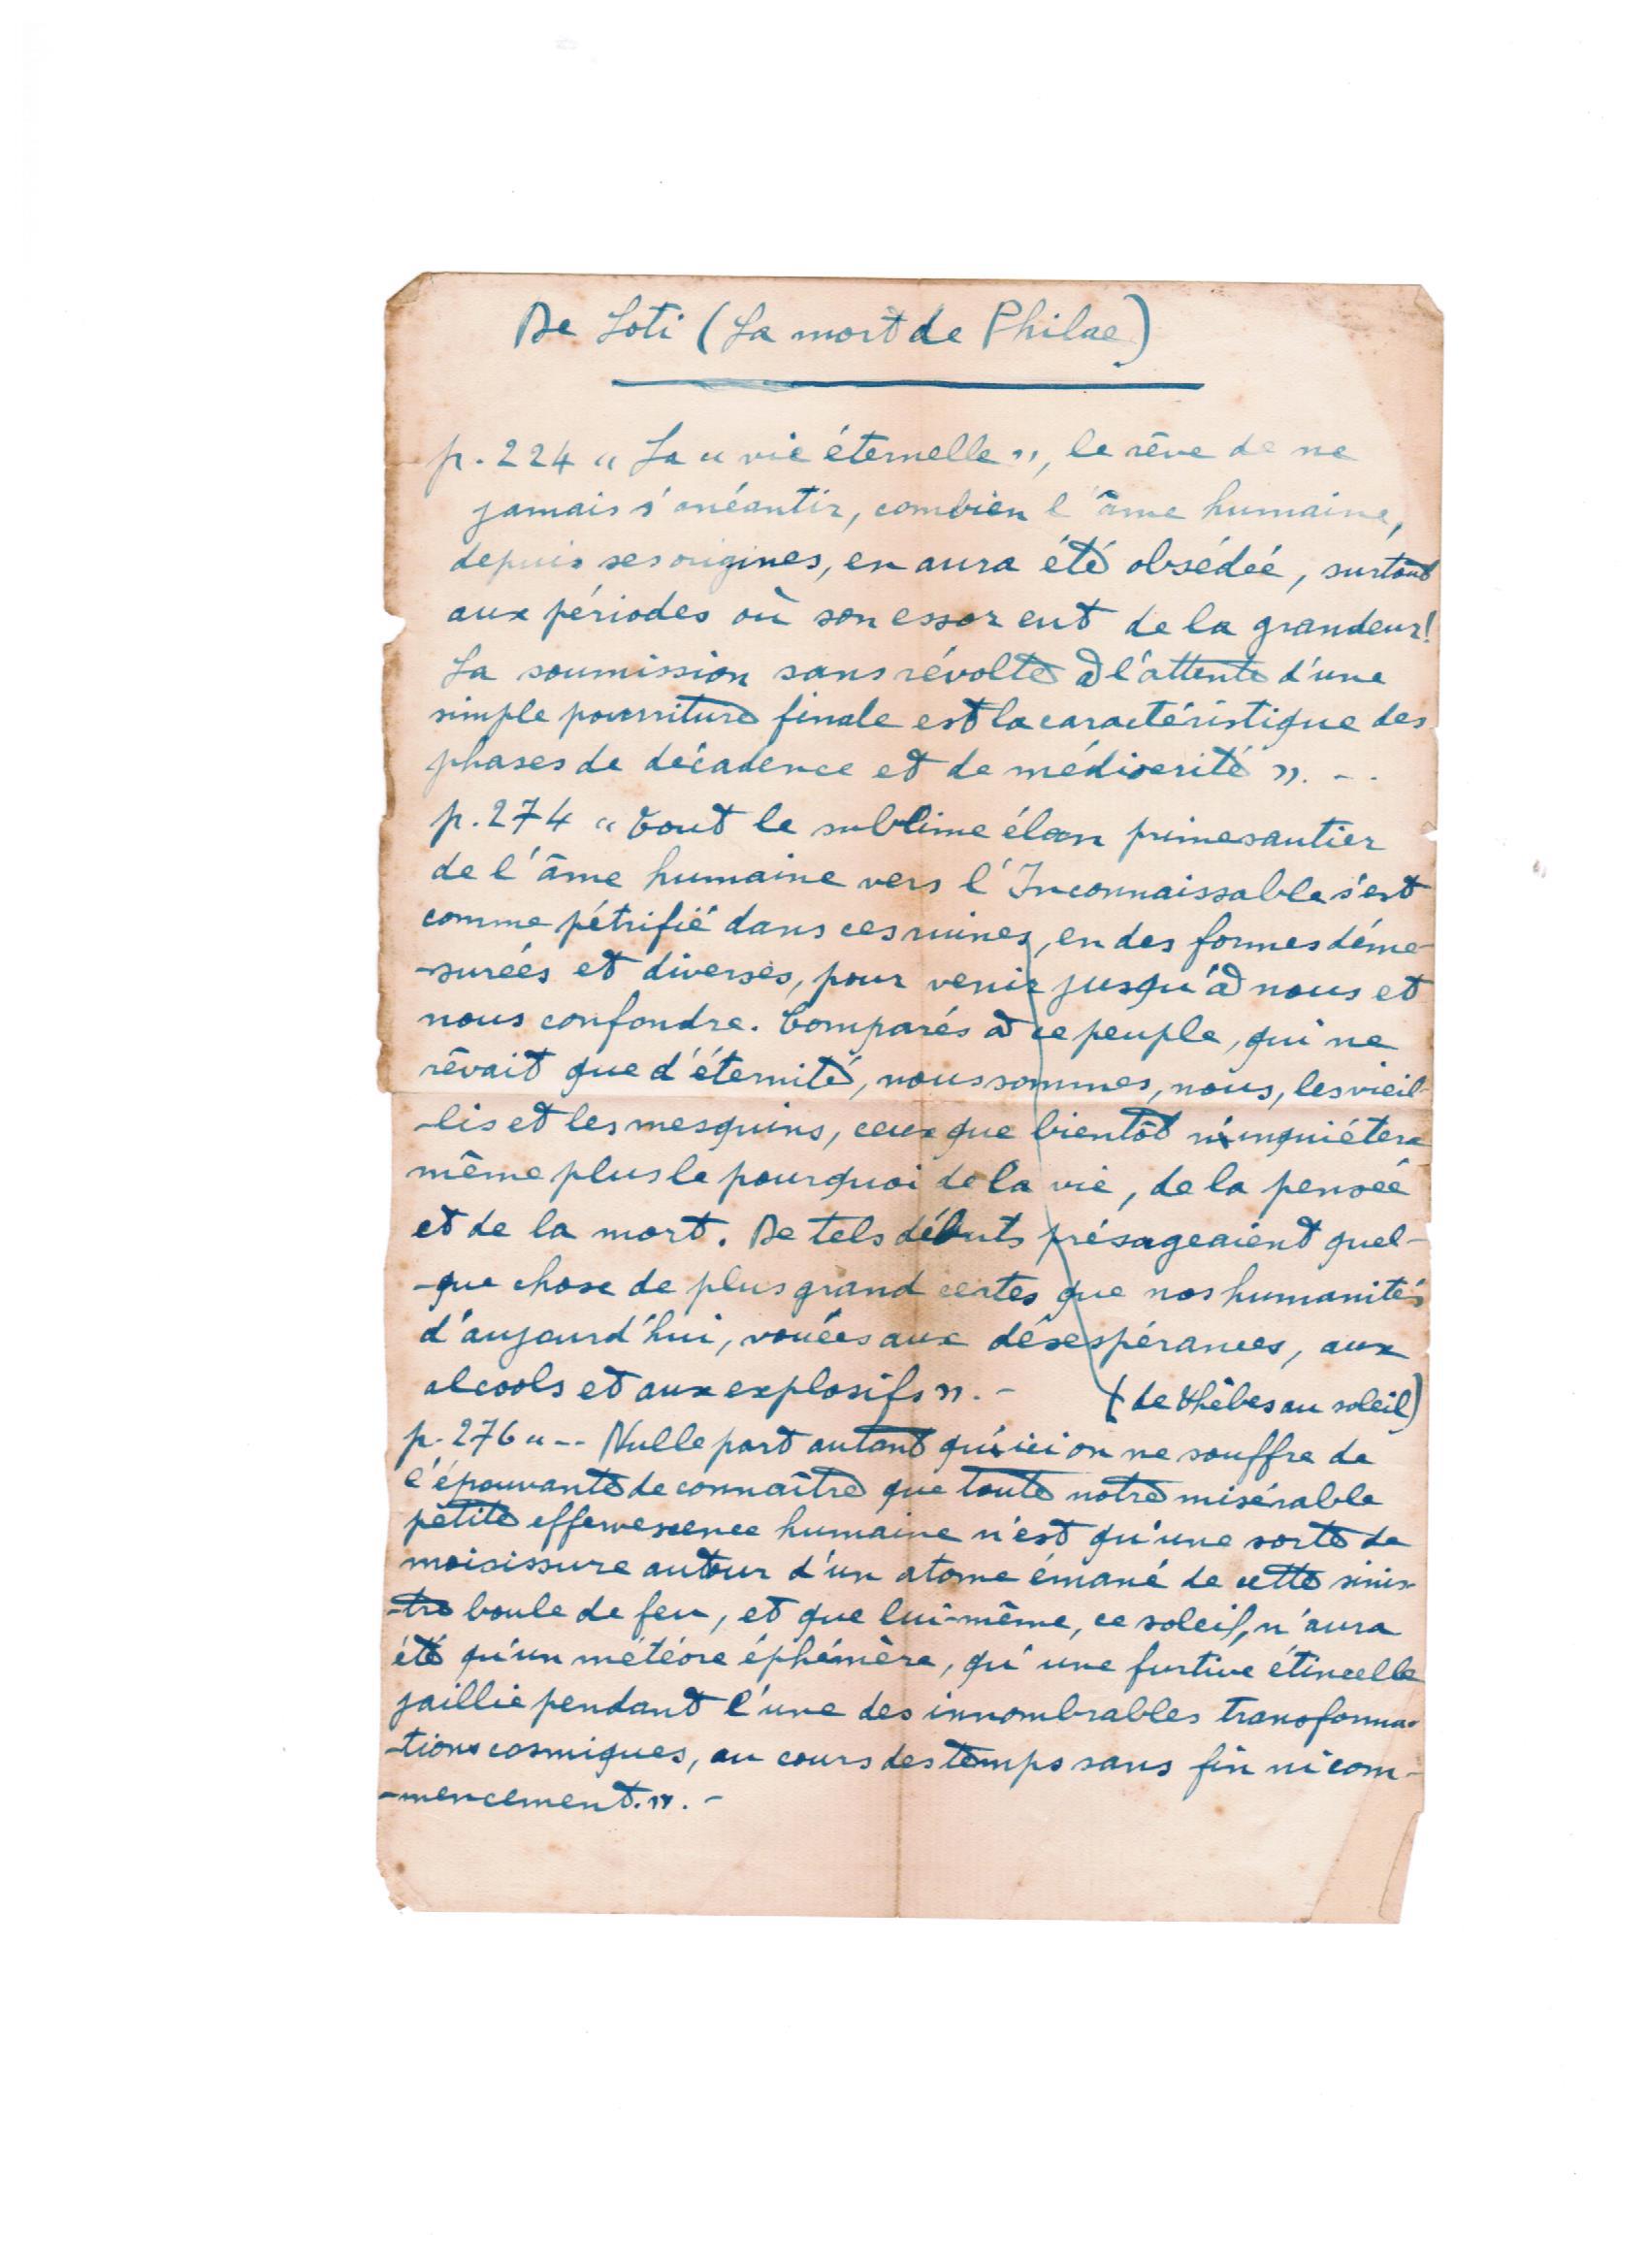 De Loti (La mort de Philae)
p. 224 « La « vie éternelle », le rêve de ne
jamais s'anéantir, combien l'âme humaine,
depuis ses origines, en aura été obsédée, surtout
aux périodes où son essor eut de la grandeur!
La soumission sans révolte à l'attente d'une
simple pourriture finale est la caractéristique des
phases de décadence et de médiocrité ». - .
p. 274 « Tout le sublime élan primesautier
de l'âme humaine vers l'Inconnaissable s'est
comme pétrifié dans ces ruines, en des formes déme-
-surées et diverses, pour venir jusqu'à nous et
nous confondre. Comparés à ce peuple, qui ne
rêvait que d'éternité, nous sommes, nous, les vieil-
-lis et les mesquins, ceux que bientôt n'inquiétera
même plus le pourquoi de la vie, de la pensée
et de la mort. De tels débuts présageaient quel-
-que chose de plus grand certes que nos humanités
d'aujourd'hui, vouées aux désespérances, aux
alcools et aux explosifs ». - (de Thèbes au soleil)
p. 276 « -- Nulle part autant qu'ici on ne souffre de
l'épouvante de connaître que toute notre misérable
petite effervescence humaine n'est qu'une sorte de
moisissure autour d'un atome émané de cette sinis-
-tre boule de feu, et que lui-même, ce soleil, n'aura
été qu'un météore éphémère, qu'une furtive étincelle
jaillie pendant l'une des innombrables transforma-
-tions cosmiques, au cours des temps sans fin ni com-
-mencement. ». -